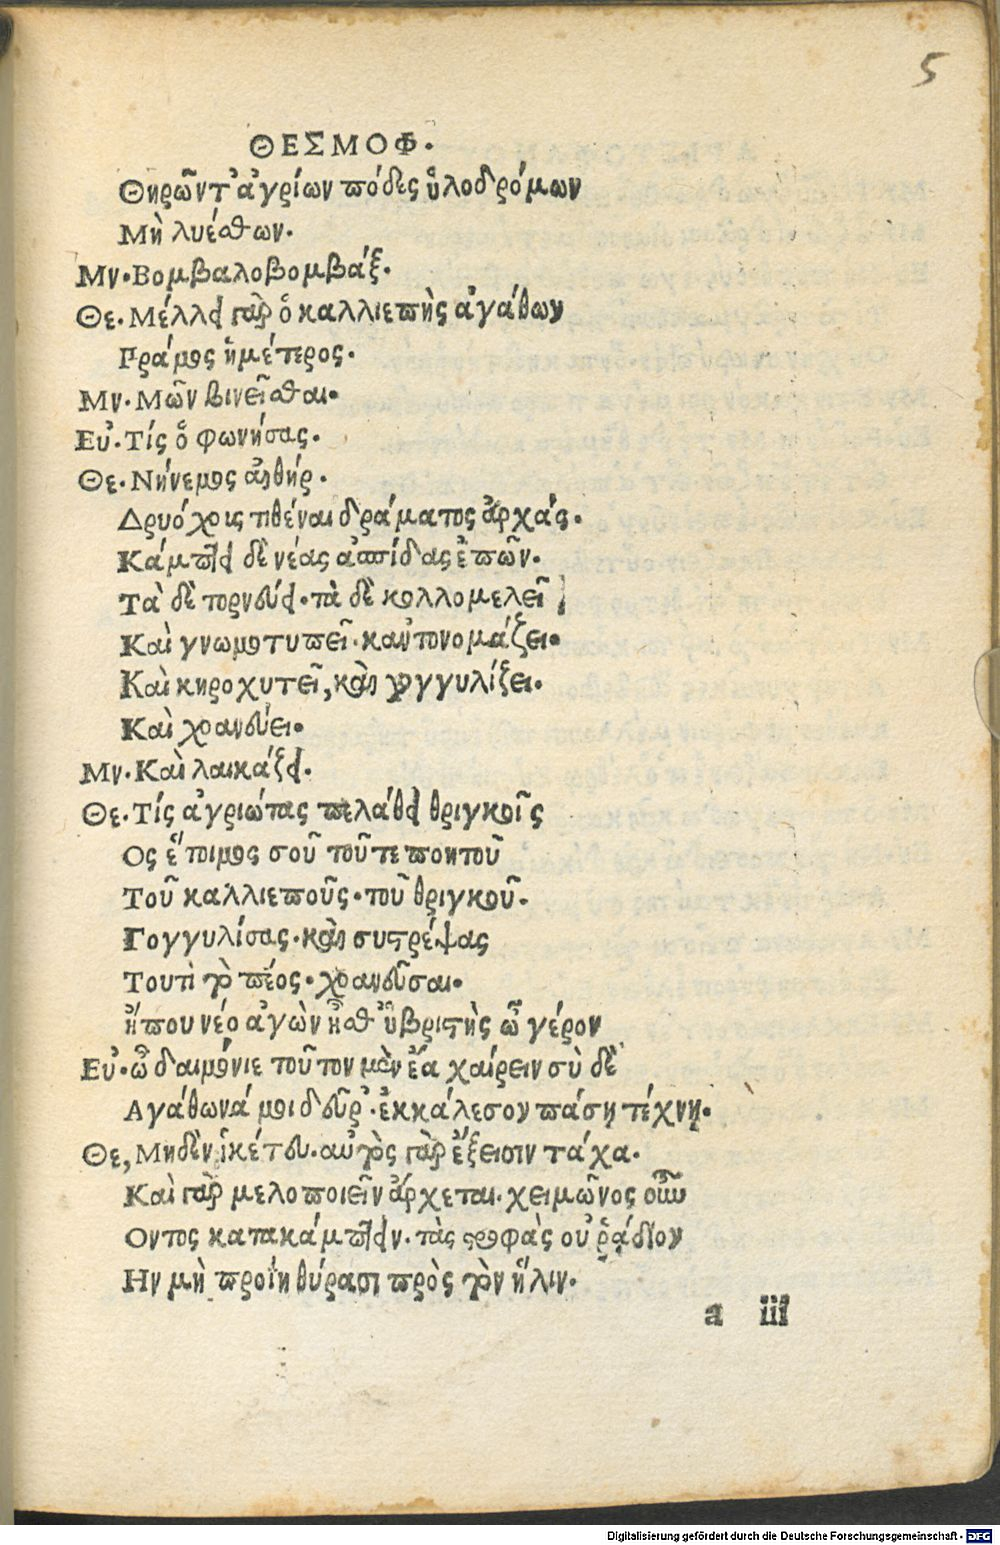 5
ΘΕΣΜΟΦ.
Θηρῶντ' ἀγρίων πόδες ὑλοδρόμων
Μὴ λυέσθων.
Μν. Βομβαλοβομβάξ.
Θε. Μέλλει γὰρ ὁ καλλιεπὴς ἀγάθων
Πράμος ἡμέτερος.
Μν. Μῶν βινεῖσθαι.
Ευ. Τίς ὁ φωνήσας.
Θε. Νήνεμος αἰθήρ.
Δρυόχοις τιθέναι δράματος ἀρχάς.
Κάμπτει δὲ νέας ἀσπίδας ἐπῶν.
Τὰ δὲ τορνεύει. τὰ δὲ κολλομελεῖ
Καὶ γνωμοτυπεῖ. καὐτονομάζει.
Καὶ κηροχυτεῖ, καὶ γογγυλίζει.
Καὶ χοανεύει.
Μν. Καὶ λαικάζει.
Θε. Τίς ἀγριώτας πελάθει θριγκοῖς
Ος ἕτοιμος σοῦ τοῦ τε ποητοῦ
Τοῦ καλλιεποῦς. τοῦ θριγκοῦ.
Γογγυλίσας. καὶ συστρέψας
Τουτὶ τὸ πέος. χοανεῦσαι.
ἤπου νέο ἀγὼν ἦσθ' ὑβριστὴς ὦ γέρον
Εὐ. ὦ δαιμόνιε τοῦτον μὲν ἔα χαίρειν σὺ δὲ
Αγάθωνά μοι δεῦρ'. ἐκκάλεσον πάσῃ τέχνῃ.
Θε, Μηδὲν ἱκέτευ. αὐτὸς γὰρ ἔξεισιν τάχα.
Καὶ γὰρ μελοποιεῖν ἄρχεται. χειμῶνος οὖν
Οντος κατακάμπτειν. τὰς στροφὰς οὐ ῥᾴδιον
Ην μὴ προίῃ θύρασι πρὸς τὸν ἥλιν.
a iii
Digitalisierung gefördert durch die Deutsche Forschungsgemeinschaft - DFG